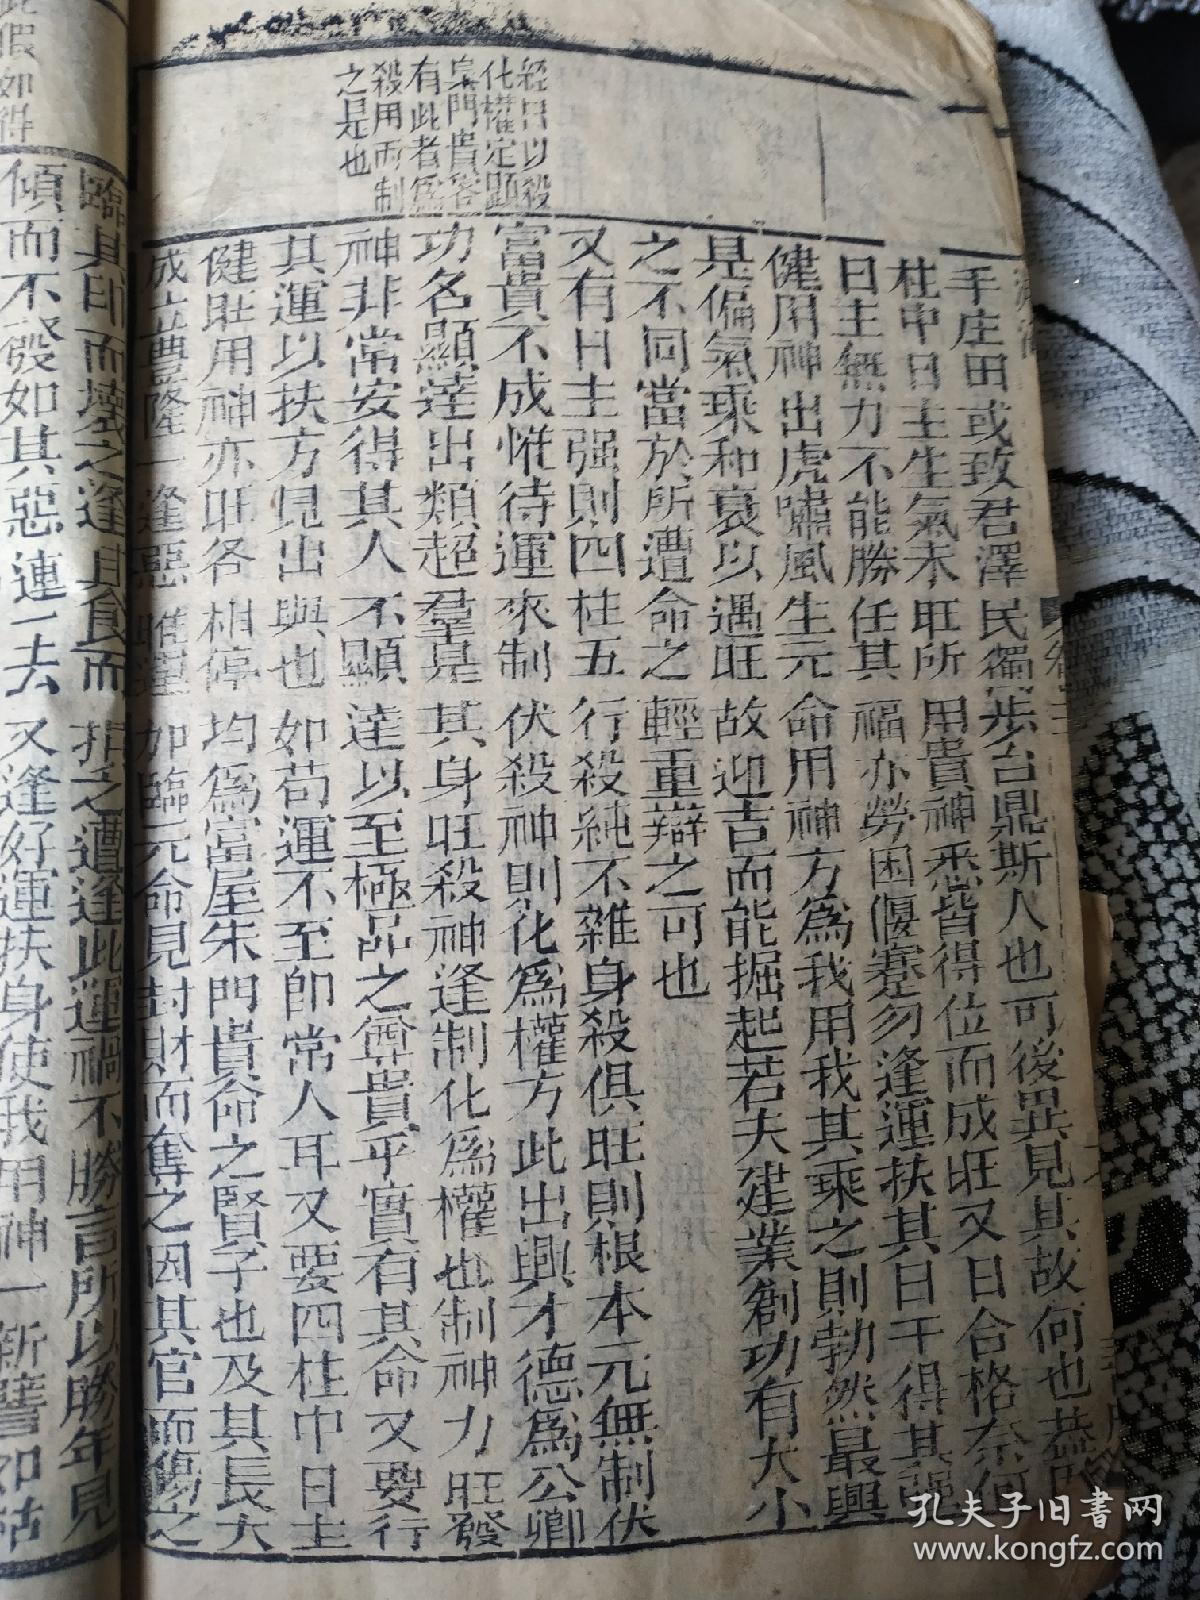 手庄田或致君澤民獨步台鼎斯人也可後異見其故何也葢
柱中日主生氣未旺所用貴神悉皆得位而成旺又日合格奈何
日主無力不能勝任其福亦勞困偃蹇勿逢運扶其日干得其强
健用神出虎嘯風生元命用神方為我用我其乘之則勃然最興
是偏氣乘和衰以遇旺故迎吉而能掘起若夫建業創功有大小
之不同當於所遭命之輕重辯之可也
又有日主强則四柱五行殺純不雜身殺俱旺則根本元無制伏
富貴不成惟待運來制伏殺神則化為權方此出興才德為公卿
功名顯達出類超羣是其身旺殺神逢制化為權也制神力旺發
神非常安得其人不顯達以至極品之尊貴乎實有其命又要行
其運以扶方見出與也如苟運不至即常人耳又要四柱中日主
健旺用神亦旺各相停均為富屋朱門貴命之賢子也及其長大
成立豊隆一逢惡唯運如臨元命見財而奪之因其官而傷之
經曰以殺
化權定顕
㒹門貴客
有此者為
殺用而制
之是也
臨其印而壞之逢其食而損之遭逢此運禍不勝言所以勝年見
傾而不發如其惡連一去又逢好運扶身使我用神一新譬如枯
此假如得
孔夫子旧书网
www.kongfz.com